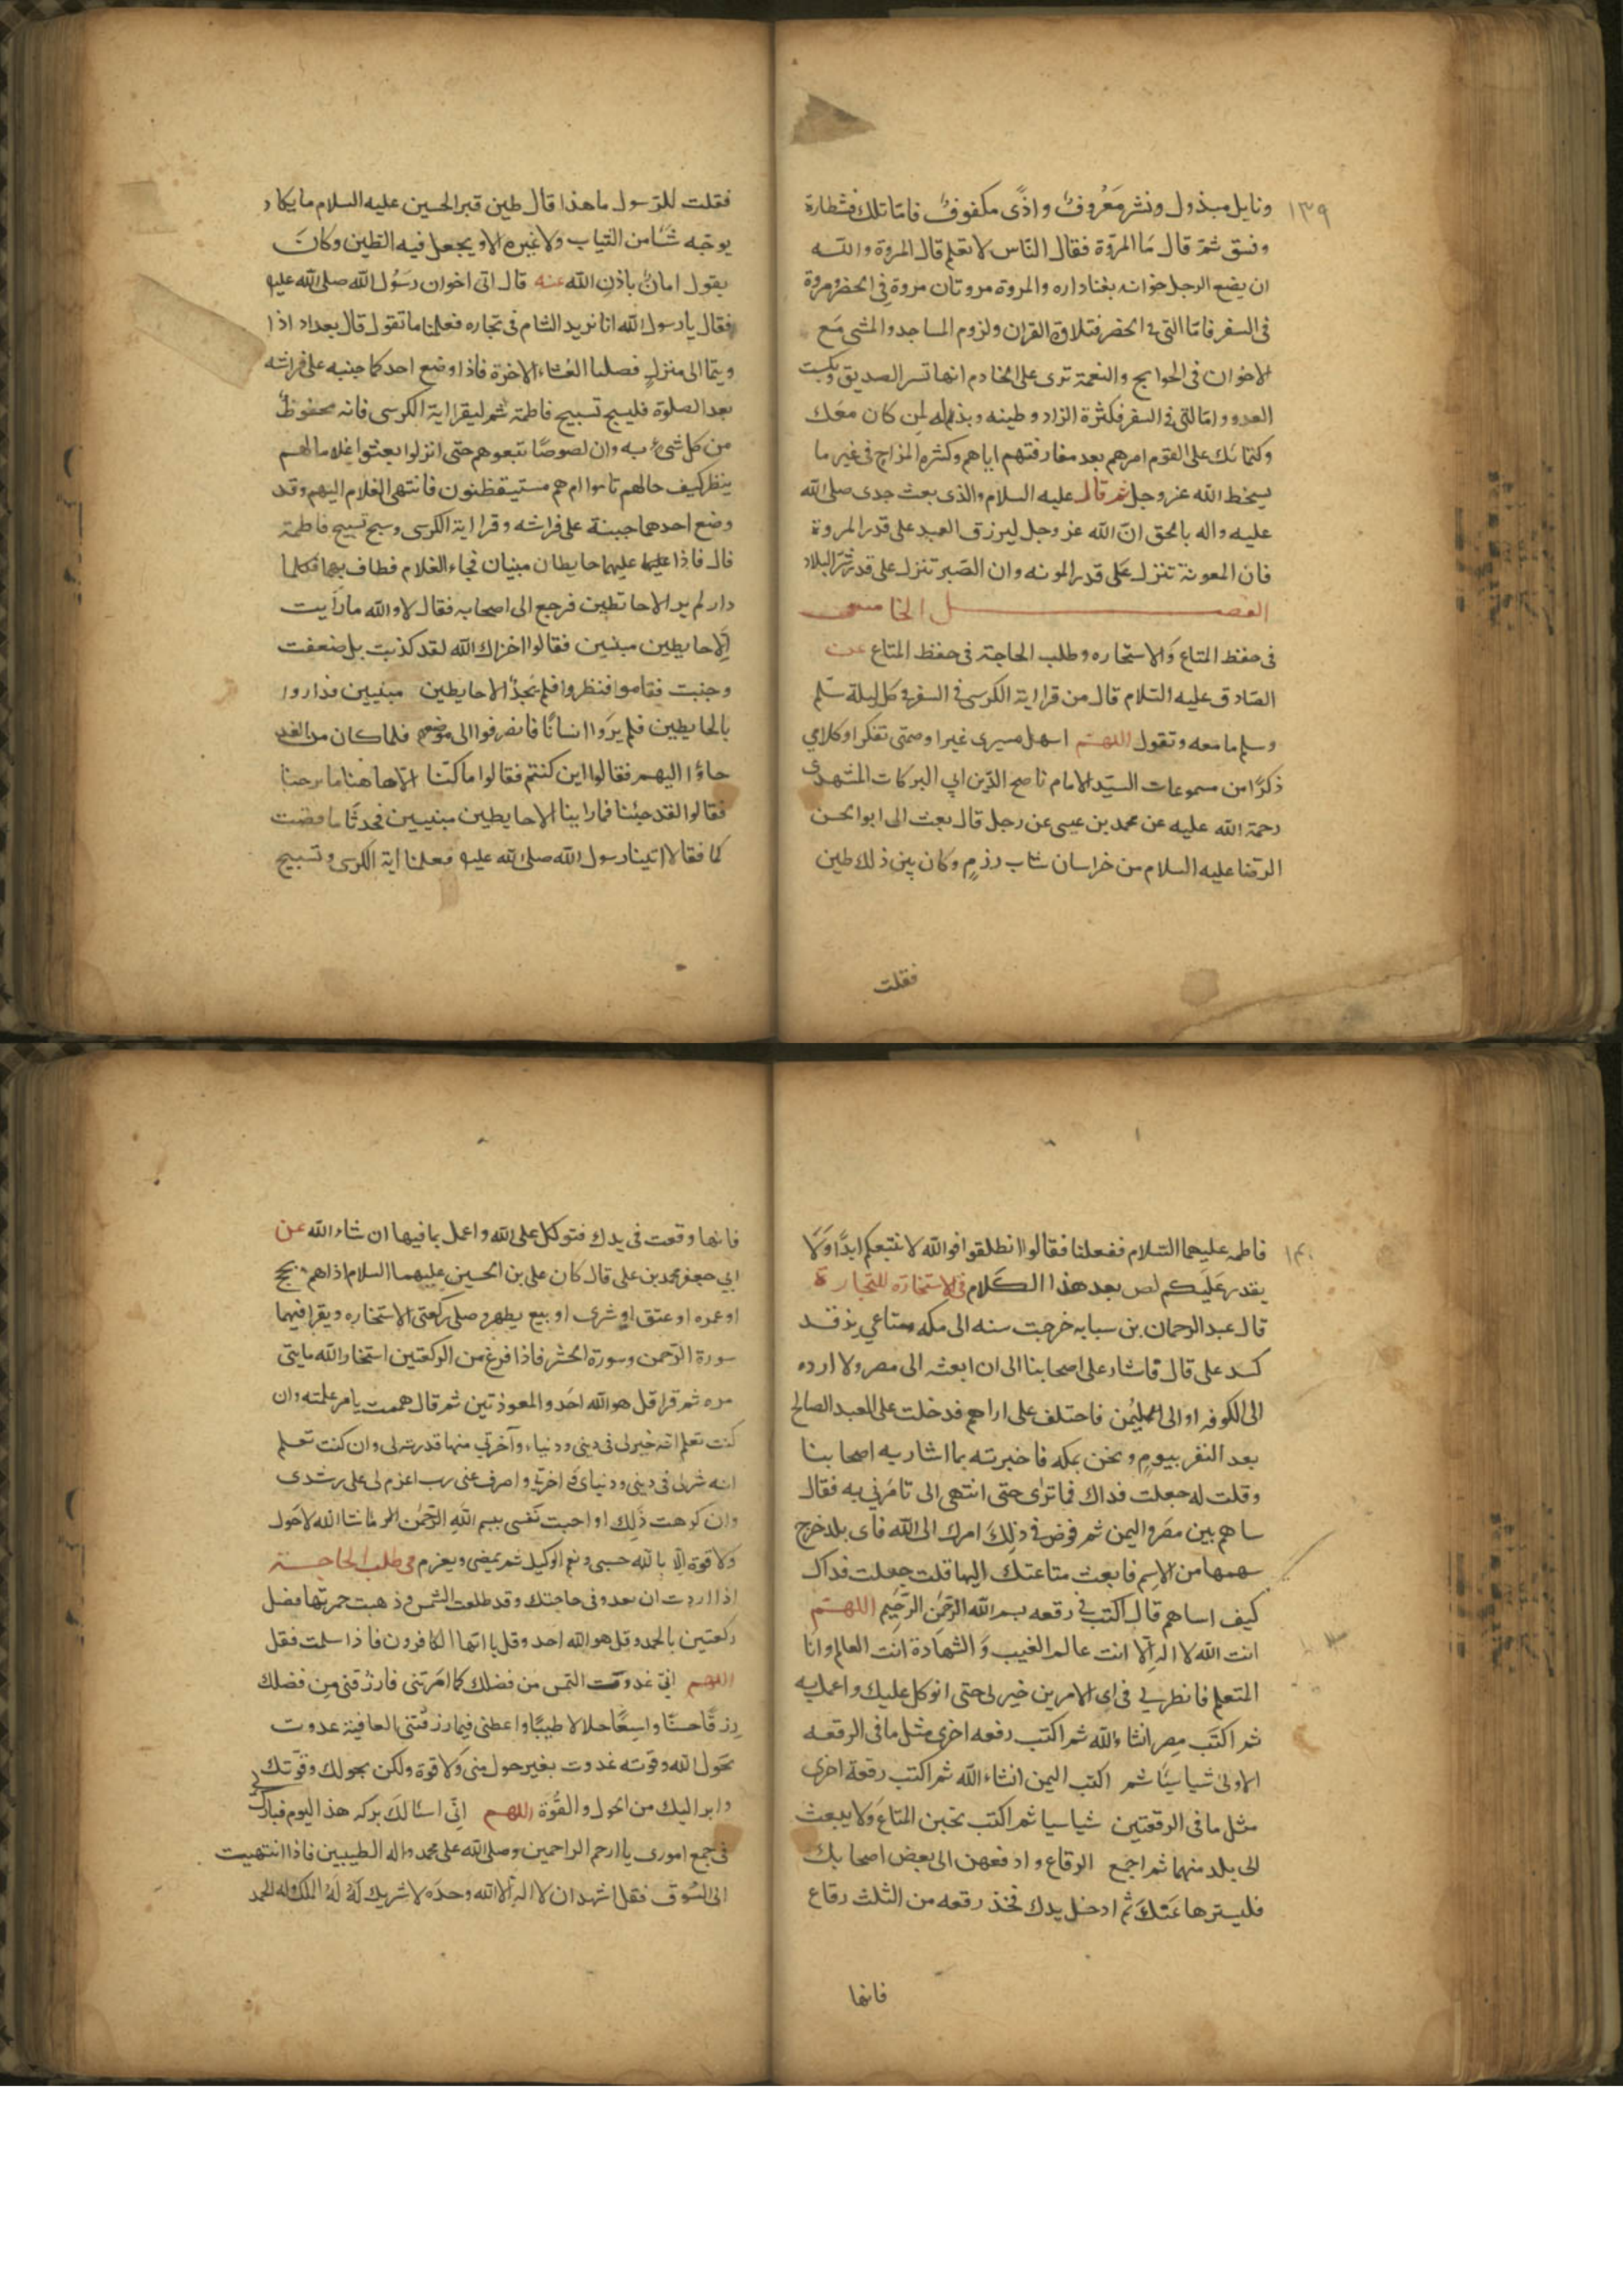 ١٣٩
ونايل مبذول ونشر معروف واذًى مكفوف فاما تلك فشطارة
وفسق ثم قال ما المروة فقال الناس لا نعلم قال المروة والله
ان يضع الرجل خوانه بفنا داره والمروة مروتان مروة فى الحضر ومروة
فى السفر فاما التى فى الحضر فتلاوة القران ولزوم المساجد والمشى مع
الاخوان فى الحوايج والنعمة ترى على الخادم انها تسر الصديق وتكبت
العدو واما التى فى السفر فكثرة الزاد وطيبه وبذله لمن كان معك
وكتمانك على القوم امرهم بعد مفارقتهم اياهم وكثره المزاح فى غير ما
يسخط الله عز وجل ثم قال عليه السلام والذى بعث جدى صلى الله
عليه واله بالحق ان الله عز وجل ليرزق العبد على قدر المروة
فان المعونة تنزل على قدر المونه وان الصبر تنزل على قدر البلاد
الفصل الخامس
فى حفظ المتاع والاستخاره وطلب الحاجة فى حفظ المتاع عن
الصادق عليه السلام قال من قرا اية الكرسى فى السفر فى كل ليلة سلم
وسلم ما معه وتقول اللهم اسهل مسيرى غيرا وصمتى تفكرا وكلامى
ذكرًا من مسموعات السيد الامام ناصح الدين ابي البركات المشهدى
رحمة الله عليه عن محمد بن عيسى عن رجل قال بعث الى ابو الحسن
الرضا عليه السلام من خراسان ثياب رزم وكان بين ذلك طين
فقلت
فقلت للرسول ما هذا قال طين قبر الحسين عليه السلام ما يكاد
يوجه شيئا من الثياب ولا غيره الا ويجعل فيه الطين وكان
يقول امان باذن الله عنه قال اتى اخوان رسول الله صلى الله عليه
فقال يا رسول الله انا نريد الشام فى تجاره فعلمنا ما تقول قال بعد اد اذا
ويتما الى منزل فصليا العشاء الاخرة فاذا وضع احدكما جنبه على فراشه
بعد الصلوة فليسبح تسبيح فاطمة ثم ليقرا اية الكرسى فانه محفوظ
من كل شىء به وان لصوصًا تبعوهم حتى انزلوا بعثوا غلاما لهم
ينظر كيف حالهم ناموا ام هم مستيقظون فانتهى الغلام اليهم وقد
وضع احدهما جنبه على فراشه وقرا اية الكرسى وسبح تسبيح فاطمة
قال فاذا عليهما حايطان مبنيان فجاء الغلام فطاف بهما فكلما
دار لم ير الا حائطين فرجع الى اصحابه فقال لا والله ما رايت
الا حايطين مبنيين فقالوا اخزاك الله لقد كذبت بل ضعفت
وجنبت فقاموا فنظروا فلم يجدوا الا حايطين مبنيين فداروا
بالحايطين فلم يروا انسانًا فانصرفوا الى موضعهم فلما كان من الغد
جاؤا اليهم فقالوا اين كنتم فقالوا ما كنا الا هاهنا ما برحنا
فقالوا لقد جئنا فما راينا الا حايطين مبنيين فحدثنا ما قصت
كما فقالا اتينا رسول الله صلى الله عليه فعلمنا اية الكرسى وتسبيح
١٤٠
فاطمه عليهما السلام ففعلنا فقالوا انطلقوا فوالله لا نتبعكم ابدًا ولا
يقدر عليكم لص بعد هذا الكلام فى الاستخارة للتجارة
قال عبد الرحمان بن سيابه خرجت سنه الى مكه ومتاعي بز قد
كسد على قال فاشار على اصحابنا الى ان ابعثه الى مصر ولا ارده
الى الكوفه او الى اليمن فاختلف على اراهم فدخلت على العبد الصالح
بعد النفر بيوم ونحن بمكه فاخبرته بما اشار به اصحابنا
وقلت له جعلت فداك فما ترى حتى انتهى الى تامرني به فقال
ساهم بين مصر واليمن ثم فوض فى ذلك امرك الى الله فاى بلد خرج
سهمها من الاسم فابعث متاعتك اليها قلت جعلت فداك
كيف اساهم قال اكتب في رقعه بسم الله الرحمن الرحيم اللهم
انت الله لا اله الا انت عالم الغيب والشهادة انت العالم وانا
المتعلم فانظر لي فى اى الامرين خير لى حتى اتوكل عليك واعمل به
ثم اكتب مصر انشاء الله ثم اكتب رقعه اخرى مثل ما فى الرقعه
الاولى شيا سيئا ثم اكتب اليمن انشاء الله ثم اكتب رقعة اخرى
مثل ما فى الرقعتين شيا سيا ثم اكتب تحبس المتاع ولا يبعث
الى بلد منهما ثم اجمع الرقاع وادفعهن الى بعض اصحابك
فليسترها عنك ثم ادخل يدك فخذ رقعه من الثلث رقاع
فانها
فانها وقعت فى يدك فتوكل على الله واعمل بما فيها ان شاء الله عن
ابي جعفر محمد بن على قال كان على بن الحسين عليهما السلام اذا هم بحج
او عمره او عتق او شرى او بيع يطهر وصلى ركعتى الاستخاره ويقرا فيهما
سورة الرحمن وسورة الحشر فاذا فرغ من الركعتين استخار الله مايتى
مره ثم قرا قل هو الله احد والمعوذتين ثم قال هممت بامر علمته وان
كنت تعلم انه خير لى فى دينى ودنياء وآخرتي منها قدرته لى وان كنت تعلم
انه شر لى فى دينى ودنياى واخرتي واصرف عنى رب اعزم لى على رشدى
وان كرهت ذلك او احبت نفسى ببسم الله الرحمن الرحيم ما شا الله لا حول
ولا قوة الا بالله حسبى ونعم الوكيل ثم يمضى ويعزم فى طلب الحاجة
اذا اردت ان تعدو فى حاجتك وقد طلعت الشمس وذهبت حمرتها فصل
ركعتين بالحمد وقل هو الله احد وقل يا ايها الكافرون فاذا سلمت فقل
اللهم اني غدوت التمس من فضلك كما امرتنى فارزقنى من فضلك
رزقًا حسنًا واسعًا حلالا طيبًا واعطنى فيما رزقتنى العافية غدوت
بحول الله وقوته غدوت بغير حول منى ولا قوة ولكن بحولك وقوتك
وابرا اليك من الحول والقوة اللهم اني اسالك بركه هذا اليوم فبارك لى
فى جمع امورى يا ارحم الراحمين وصلى الله على محمد واله الطيبين فاذا انتهيت
الى السوق فقل اشهد ان لا اله الا الله وحده لا شريك له له الملك وله الحمد